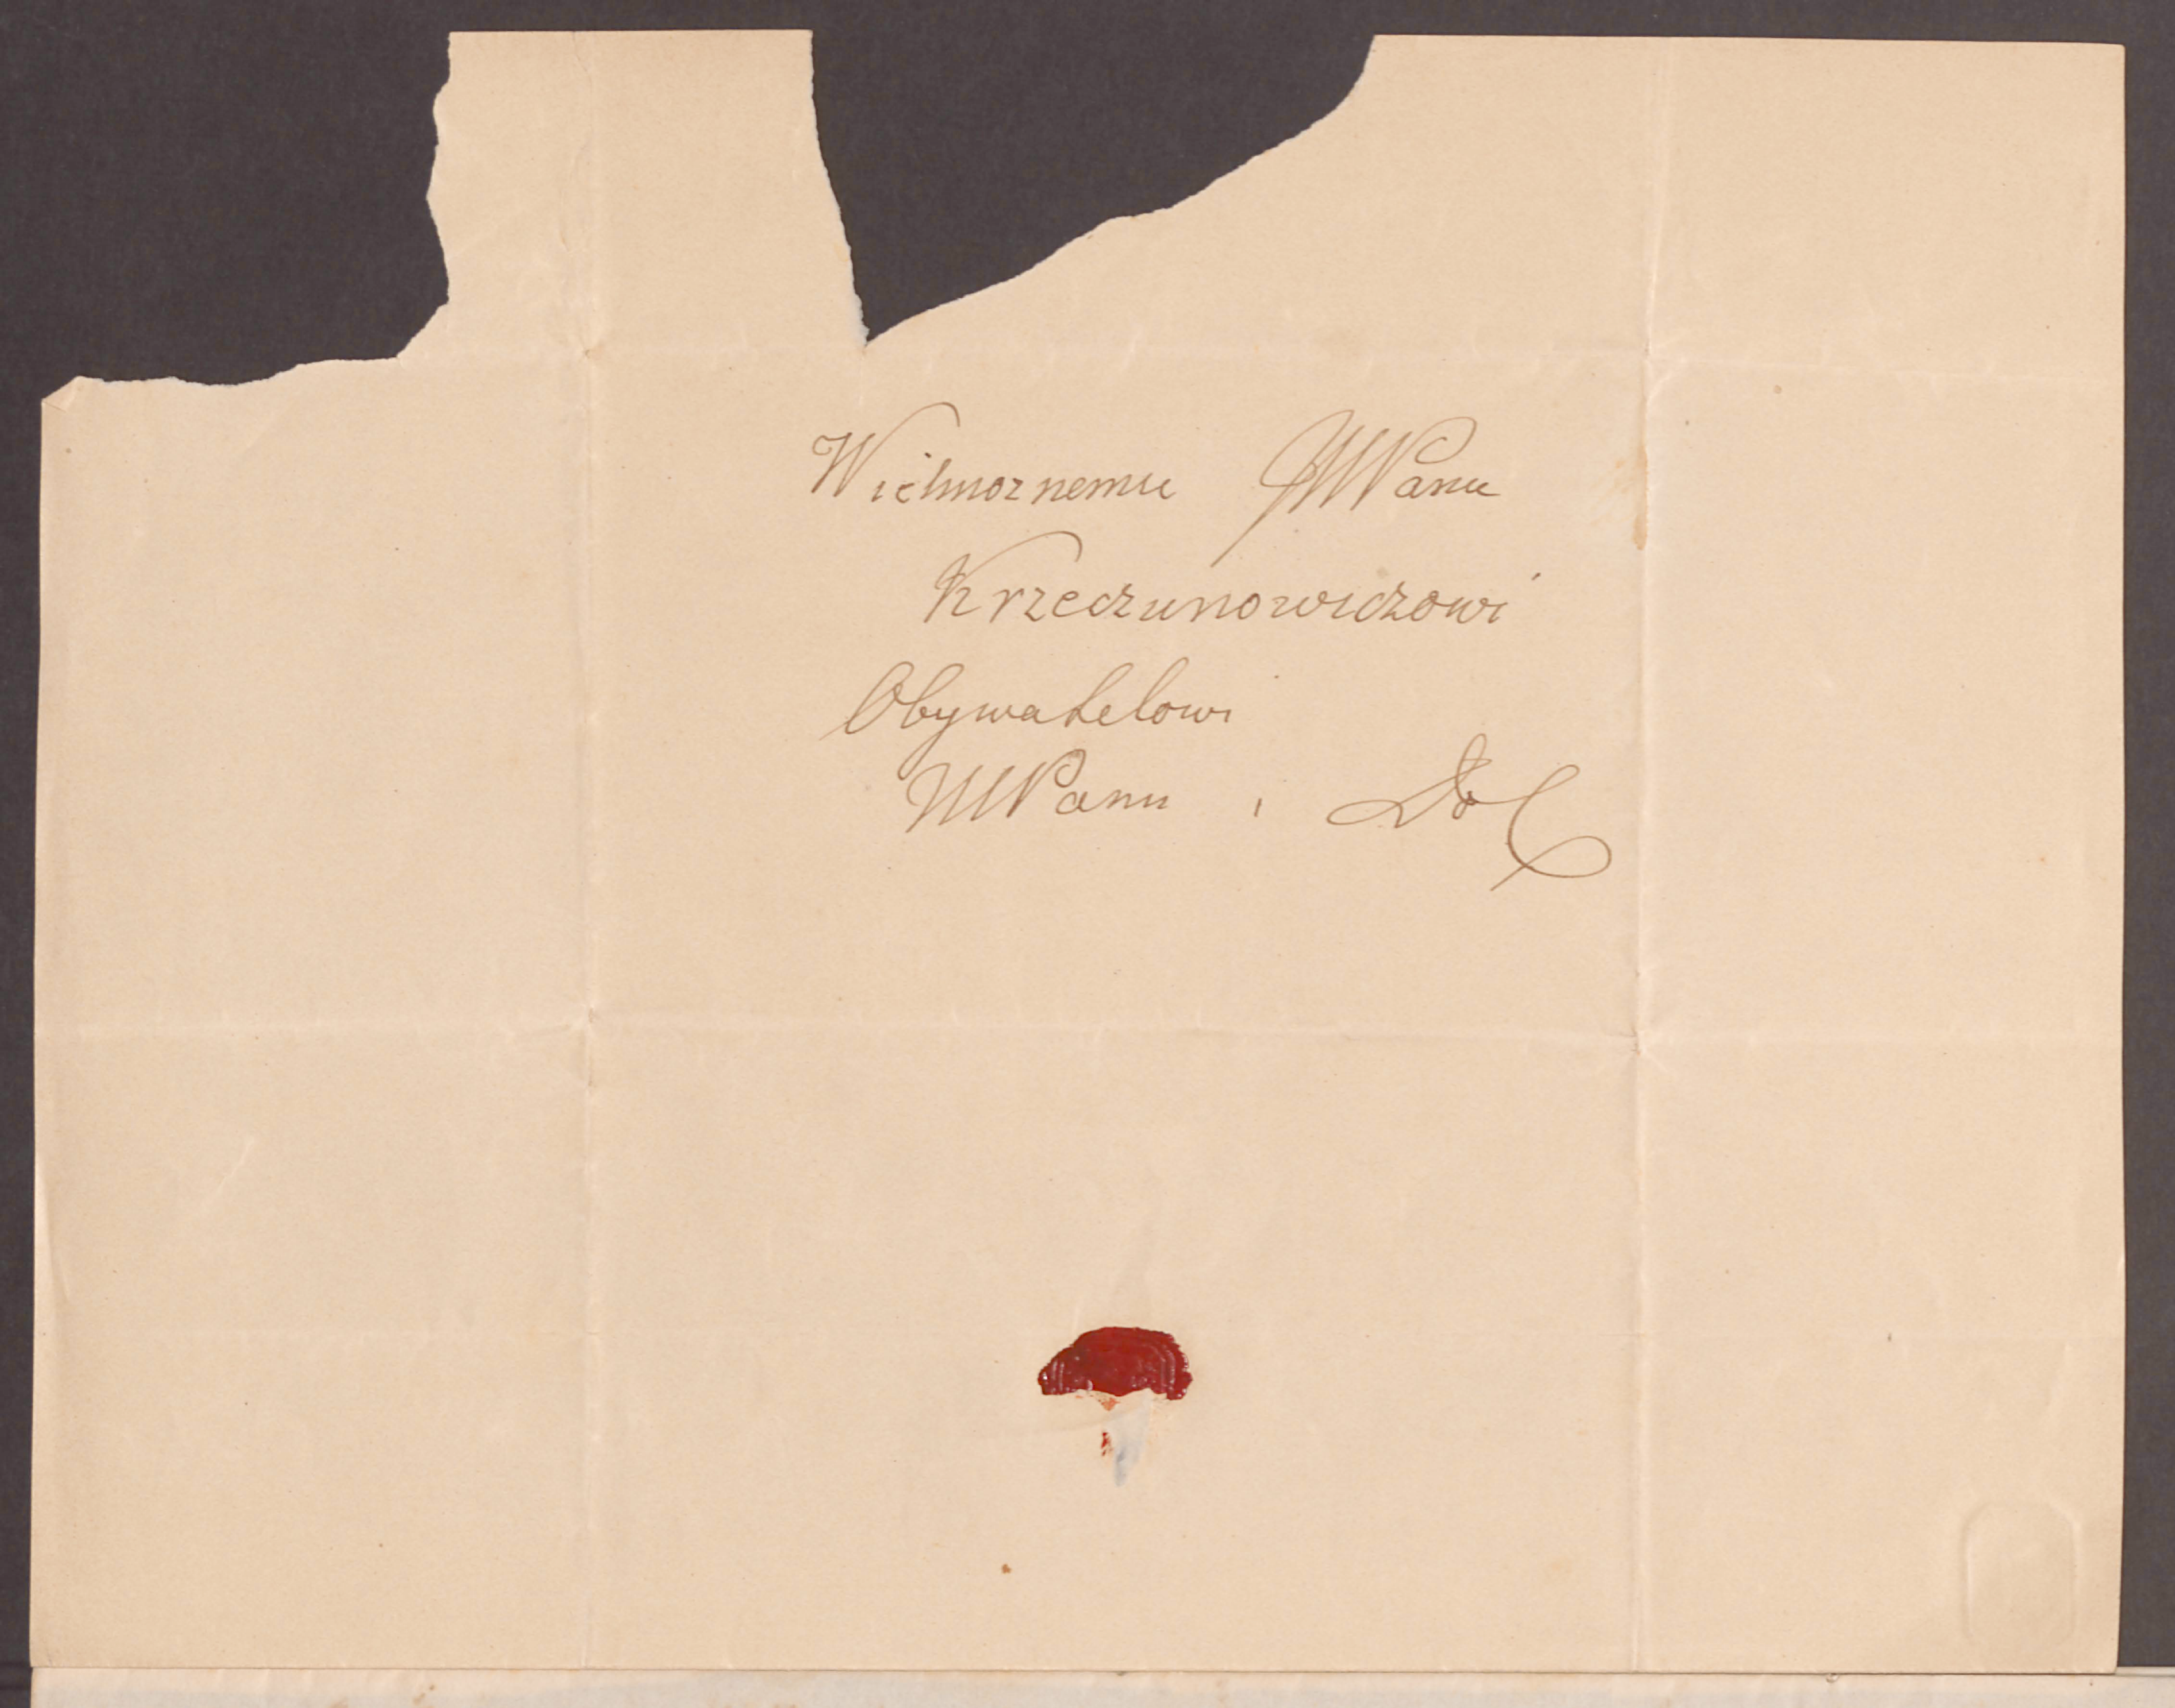 Wielmoznemu JMPanu
Krzeczunowiczowi
Obywatelowi
MPanu i Do